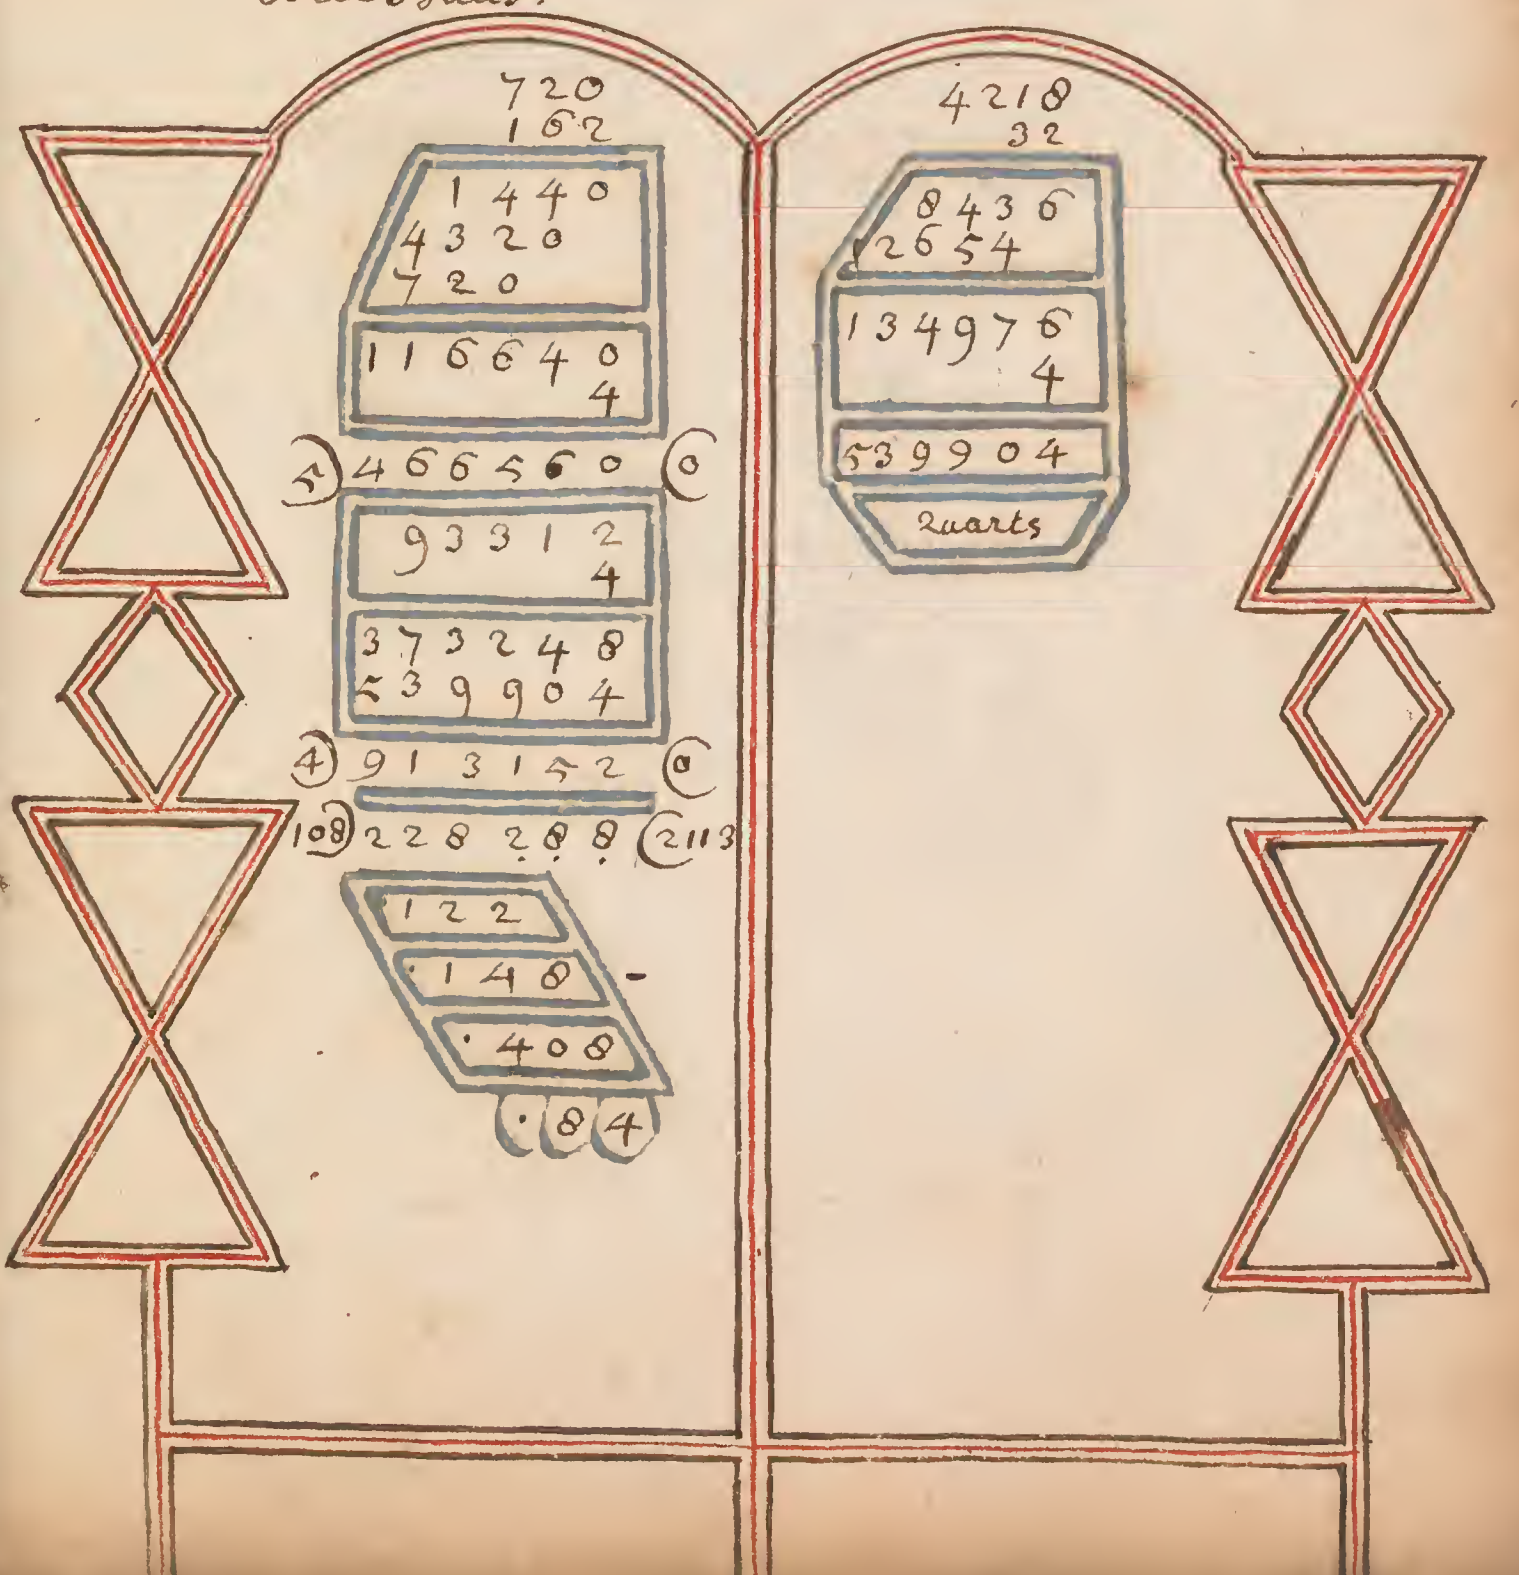 720
162
1440
4320
720
116640
4
5) 466560 (0
93312
4
373248
539904
4) 913152 (0
108) 228288 (2113
122
148
408
84
4218
32
8436
12654
134976
4
539904
Quarts